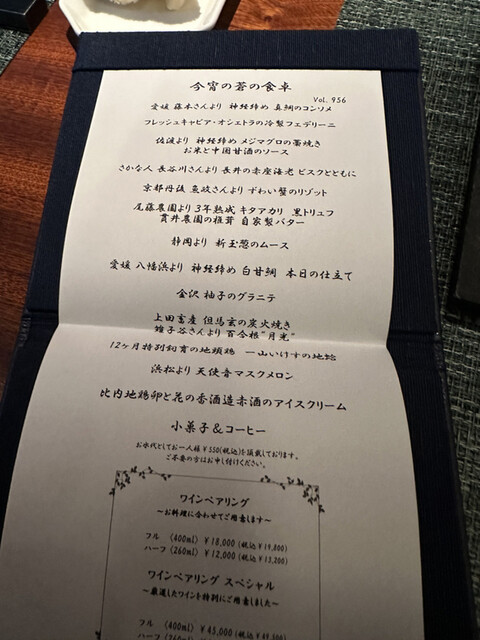 今宵の蒼の食卓
Vol. 956
愛媛 藤本さんより 神経締め 真鯛のコンソメ
フレッシュキャビア・オシェトラの冷製フェデリーニ
佐渡より 神経締め メジマグロの藁焼き
お米と中国甘酒のソース
さかな人 長谷川さんより 長井の赤座海老 ビスクとともに
京都丹後 魚政さんより ずわい蟹のリゾット
尾藤農園より 3年熟成 キタアカリ 黒トリュフ
貫井農園の椎茸 自家製バター
静岡より 新玉葱のムース
愛媛 八幡浜より 神経締め 白甘鯛 本日の仕立て
金沢 柚子のグラニテ
上田畜産 但馬玄の炭火焼き
雉子谷さんより 百合根"月光"
12ヶ月特別飼育の地頭鶏 一山いけすの地蛤
浜松より 天使音マスクメロン
比内地鶏卵と花の香酒造赤酒のアイスクリーム
小菓子&コーヒー
お水代としてお一人様 ¥550(税込)を頂戴しております。
ご不要の方はお申し付けください。
ワインペアリング
～お料理に合わせてご用意します～
フル (400ml) ¥18,000 (税込 ¥19,800)
ハーフ (260ml) ¥12,000 (税込 ¥13,200)
ワインペアリング スペシャル
～厳選したワインを特別にご用意しました～
フル (400ml) ¥45,000 (税込 ¥49,500)
ハーフ (260ml)